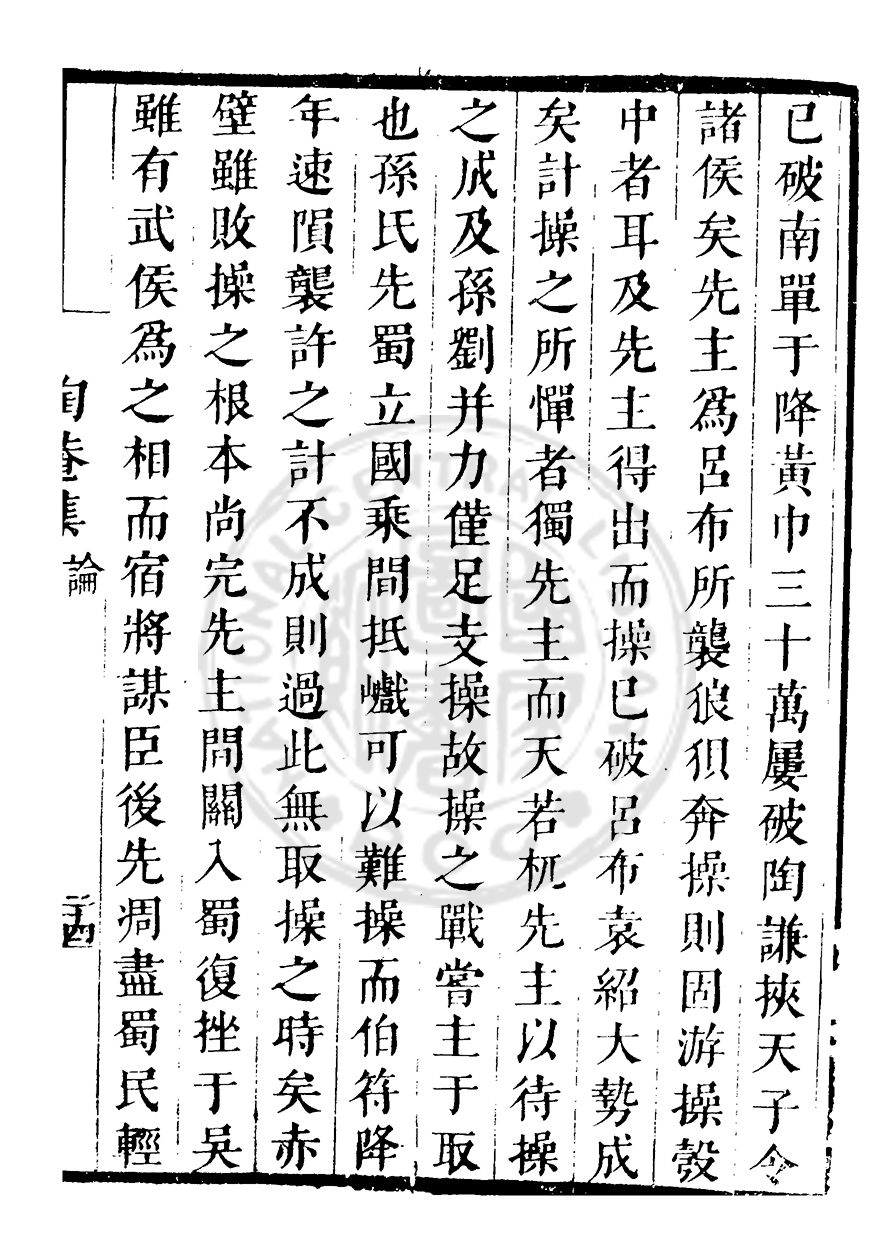 已破南單于降黃巾三十萬屢破陶謙挾天子令
諸侯矣先主爲呂布所襲狼狽奔操則固游操彀
中者耳及先主得出而操已破呂布袁紹大勢成
矣計操之所憚者獨先主而天若杌先主以待操
之成及孫劉并力僅足支操故操之戰嘗主于取
也孫氏先蜀立國乘間抵巇可以難操而伯符降
年速隕襲許之計不成則過此無取操之時矣赤
壁雖敗操之根本尚完先主間關入蜀復挫于吳
雖有武侯爲之相而宿將謀臣後先凋盡蜀民輕
陶菴集 論 二十四